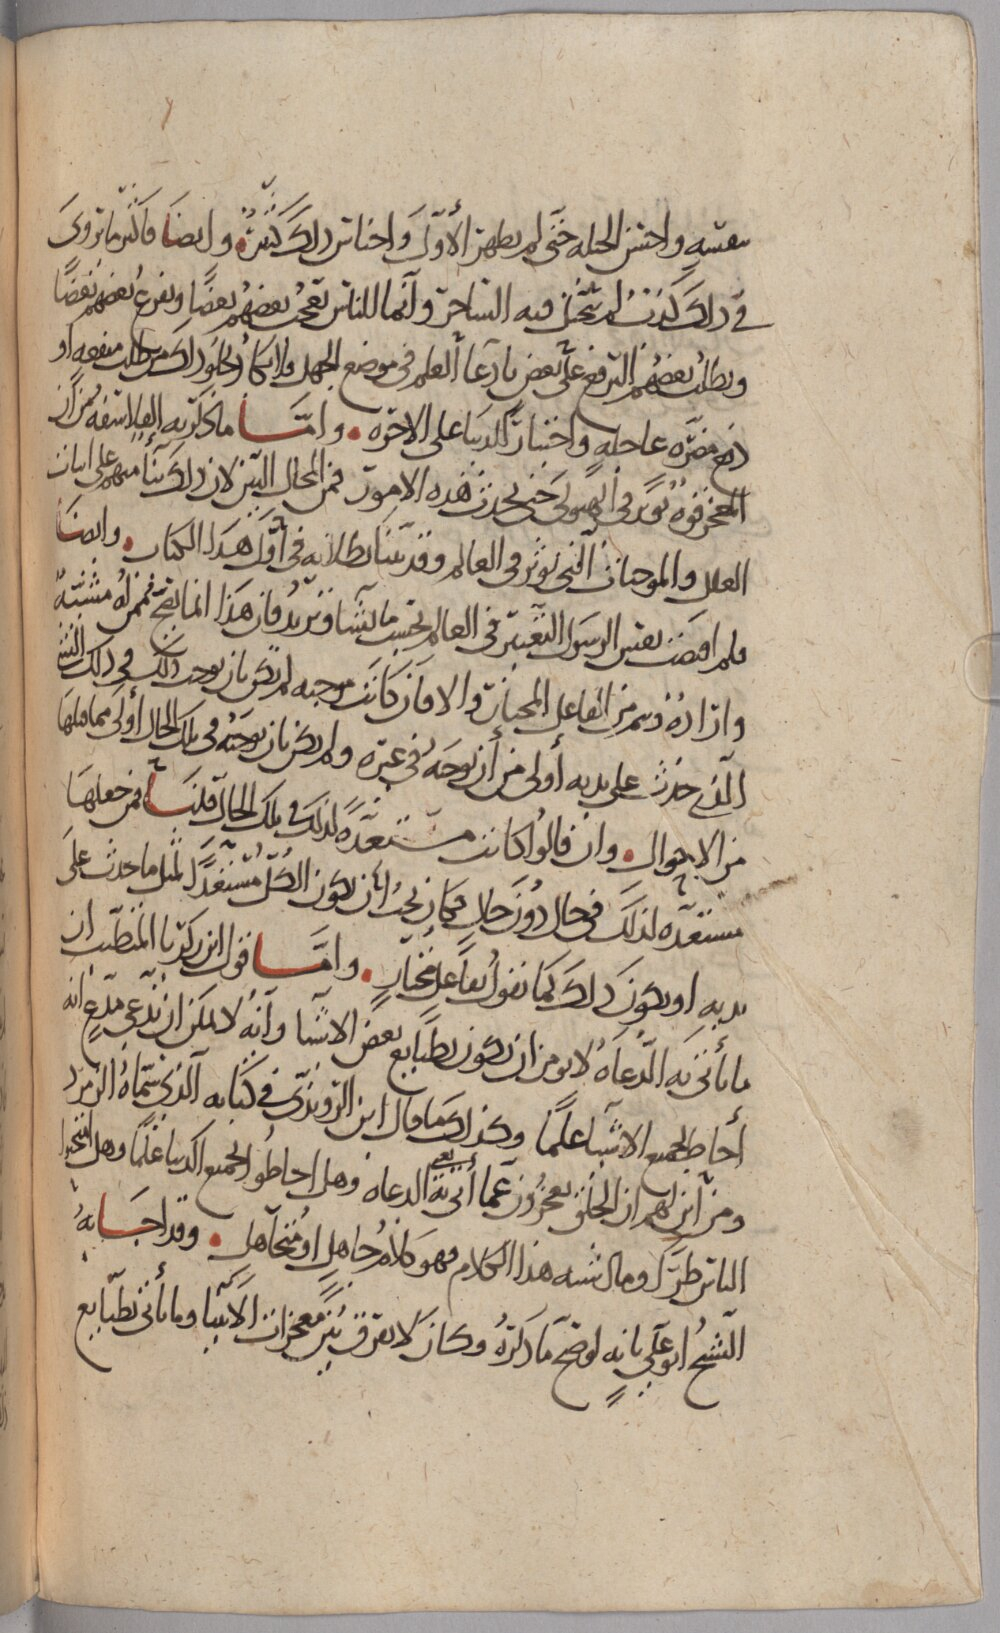 نفسه واحسن الحيله حتى لم يظهر الأول واجناس ذلك كثيرة وايضا فاكثر ما يروى
في ذلك كذب لم يتخيل فيه الساحر وانما للناس بعضهم بعضا ويفزع بعضهم بعضا
ويطلب بعضهم الترفع على بعض بادعا العلم في موضع الجهل ذلك من طلب منفعه او
دفع مضره عاجله واختيار الدنيا على الاخره واما ما ذكرته الفلاسفه من ان
المعجز قوة في الهيولى حتى يحدث هذه الامور فمن المحال البين لان ذلك بنا منهم على اثبات
العلل والموجبات التي توثر في العالم وقد بينا بطلانه في اول هذا الكتاب وايضا
فلم اقتضت نفس الرسول التغيير في العالم بحسب ما يشا ويريد فان هذا انما يصح فيمن له مشيئة
وارادة وهم من الفاعل المختار والا فان كانت موجبه لم تكن بان توجب ذلك في ذلك الشي
الذي حدث على يديه أولى من أن توجبه في غيره ولم تكن بان توجبه في تلك الحال أولى مما قبلها
من الاحوال وان قالوا كانت مستعدة لذلك في تلك الحال قلنا فمن جعلها
مستعده لذلك في حال دون حال فكان يجب ان يكون الكل مستعدا لمثل ما حدث على
يديه او يكون ذلك كما نقول بفاعل مختار واما قول ابن زكريا المتطبب ان
ما يأتي به الدعاة لا يومن ان يكون بطبايع بعض الاشيا وانه لا يمكن ان يدعي مدع انه
أحاط بجميع الاشيا علما وكذلك ما قال ابن الروندي في كتابه الذي سماه الزمرد
ومن أين لهم ان الخلق يعجزون عما أتى به الدعاه وهل احاطوا بجميع الدنيا علما وهل امتحنوا
الناس طرا وما اشبه هذا الكلام فهو كلام جاهل او متجاهل وقد اجابه
الشيخ ابو علي بانه لو صح ما ذكره وكان لا يفرق بين معجزات الأنبيا وما يأتي بطبايع